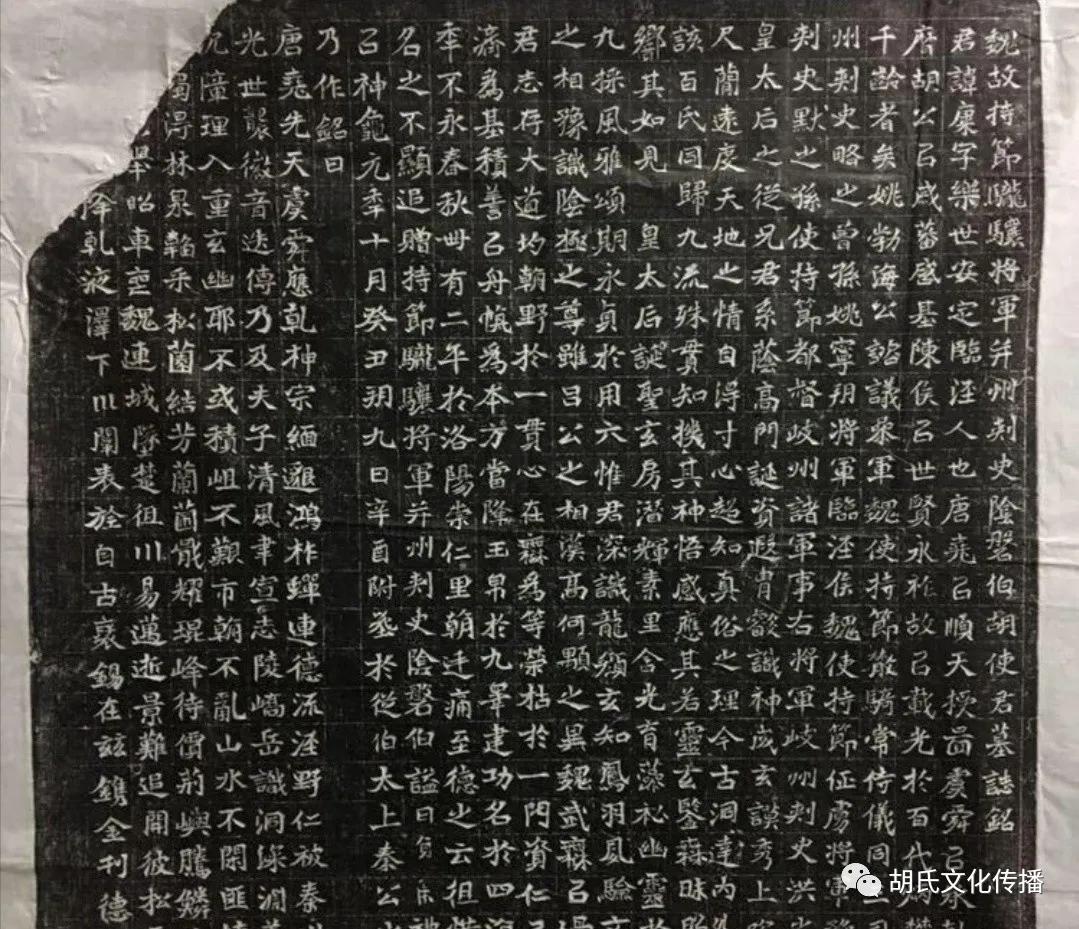 魏故持節驍驤將軍并州刾史陰磐伯胡使君墓誌銘
君諱㢘字樂世安定臨涇人也唐堯㠯順天授啚虞舜㠯
磿胡公㠯咸蕃感基陳侯㠯世賢永祚故㠯載光於百代
千齡者矣姚勃海公諮議叅軍魏使持節散騎常侍儀同三司
州刾史略之曾孫姚寧朔將軍臨涇侯魏使持節征虜將軍
刾史默之孫使持節都督岐州諸軍事右將軍岐州刾史洪之
皇太后之從兄君系蔭高門誕資遐胄㱃識神
尺蘭遠度天地之情自淂寸心超知真俗之理今古洞達內
該百氏同歸九流殊貫知機其神悟感應其若靈玄鑒
響其如見 皇太后誕聖玄房潛輝素里含光育藻松幽靈
九採風雅頌期永貞於用六惟君深識龍顏玄知鳳羽
之相豫識陰極之尊雖呂公之相漢高何顒之異魏武
君志存大道均朝野於一貫心在齊為等榮枯於一門資仁
濟為基積善㠯舟慎為本方當降玉帛於九睪建功名於四
秊不永春秋丗有二年於洛陽崇仁里朝廷痛至德之云徂
名之不顯追贈持節驍驤將軍并州刾史陰磐伯謚曰
㠯神龜元秊十月癸丑玥九日辛酉附𦵏於從伯太上秦公
乃作銘曰
唐堯先天虞舜應乹神宗緬邈鴻祚蟬連德流涇野仁被秦
光世襲徽音迭傳乃及夫子清風聿宣志陵嶠岳識洞淥淵
沉憧理入重玄幽耶不或積岨不艱市朝不亂山水不閑匪
淂林泉韜采松菌結芳蘭𦶜戢耀琨峰待價荊嶼騰鱗
昭車空魏連城墜楚徂川易邁逝景難追開彼松
降乹液澤下川闡表於自古襃錫在兹鐫金刋德
胡氏文化传播